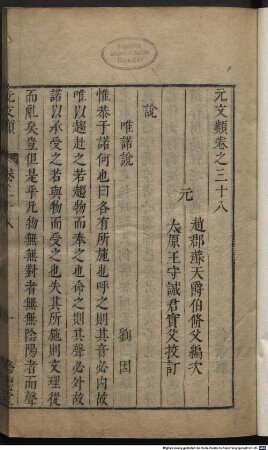 元文類卷之三十八
元
趙郡蘇天爵伯修父編次
太原王守誠君實父校訂
說
唯諾說
劉因
惟恭于諾何也曰各有所施也呼之則其音必內故
唯以趨赴之若趨物而奉之也命之則其聲必外故
諾以承受之若與物而受之也失其所施則文理從
而亂矣豈但是乎凡物無無對者無無陰陽者而聲
元文類
卷三十八
一